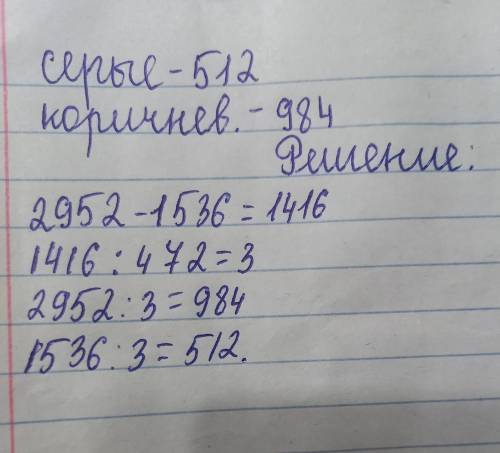 серые - 512
коричнев. - 984
Решение:
2952 - 1536 = 1416
1416 : 472 = 3
2952 : 3 = 984
1536 : 3 = 512.